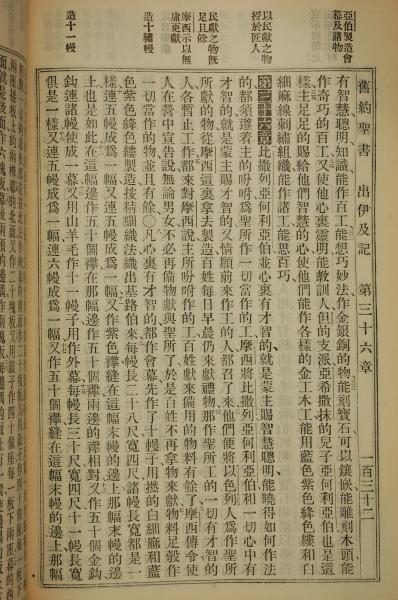 舊約聖書 出伊及記 第三十六章 一百三十二
亞伯製造會
幕及諸物
以民獻之物
授於匠人
民獻之物旣
足且餘
摩西示以無
庸更獻
造十繡幔
造十一幔
有智慧聰明知識能作百工能想巧妙法作金銀銅的物能刻寶石可以鑲嵌能雕刻木頭能
作奇巧的百工又使他心裏靈明能教訓人但的支派亞希撒抹的兒子亞何利亞伯也是這
樣主足足的賜給他們智慧的心使他們能作各樣的金工木工能用藍色紫色絳色縷和白
細麻線刺繡組織能作諸工能思百巧
第三十六章比撒列亞何利亞伯並心裏有才智的就是蒙主賜智慧聰明能曉得如何作法
的都須遵着主的吩咐爲聖所作一切當作的工摩西將比撒列亞何利亞伯和一切心中有
才智的就是蒙主賜才智的又情願前來作工的人都召了來他們便將以色列人爲作聖所
所獻的物從摩西這裏拿去製造百姓每日早晨仍來獻禮物那作聖所工的一切有才智的
人各暫止工作都來對摩西說主所吩咐作的工百姓獻來備用的物料有餘了摩西傳令使
人在營中宣告說無論男女不必再備物獻與聖所了於是百姓不再拿物來獻物料足彀作
一切當作的物並且有餘○凡心裏有才智的都作會幕先作了十幔子用撚的白細麻和藍
色紫色絳色縷製造按精細織法織出基路伯來每幔長二十八尺寬四尺諸幔長寬都是一
樣連五幔成爲一幅又連五幔成爲一幅又作紫色襻縫在這幅末幔的邊上那幅末幔的邊
上也是如此在這幅邊作五十個襻在那幅邊作五十個襻兩邊的襻相對又作五十個金鈎
鈎連諸幔使成一幕又用山羊毛作十一幔子用作外幕每幔長三十尺寬四尺十一幔長寬
俱是一樣又連五幔成爲一幅連六幔成爲一幅又作五十個襻縫在這幅末幔的邊上那幅